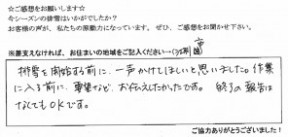 ☆ご感想をお願いします☆
今シーズンの排雪はいかがでしたか？
お客様の声が、私たちの原動力になっています。ぜひ、ご感想をお聞かせ下さい。
※差支えなければ、お住まいの地域をご記入ください→(
排雪を開始する前に、一声かけてほしいと思いました。作業
に入る前に、要望など、お伝えしたかったです。終了の報告は
なくてもOKです。
ご協力ありがとうございました！